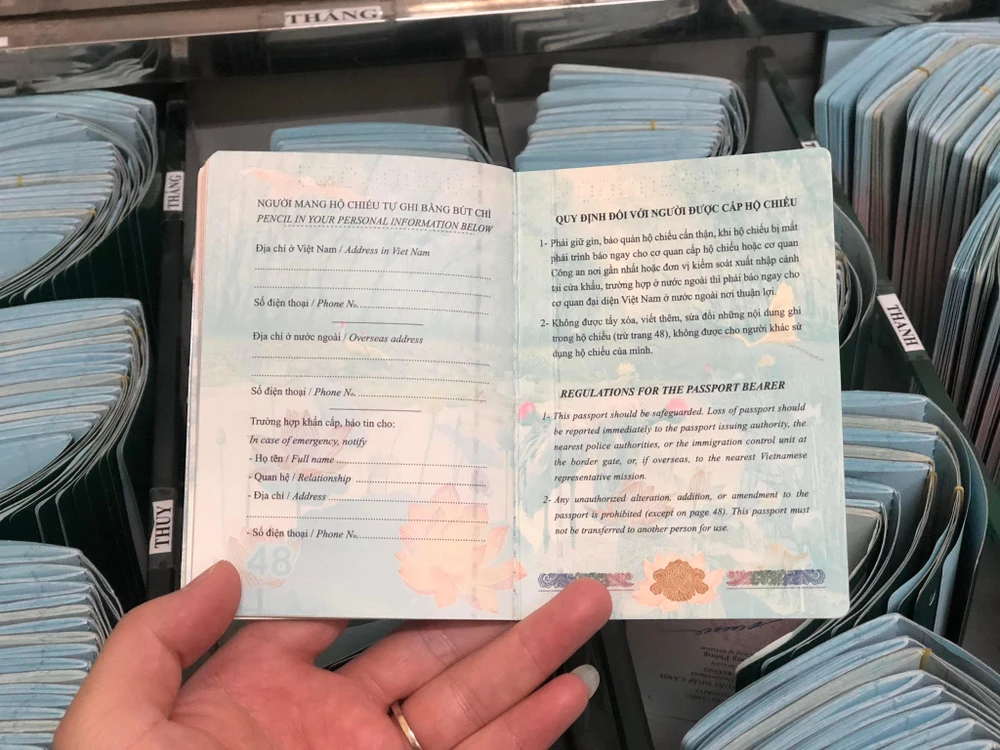 THẮNG
THẮNG
THANH
THUY
NGƯỜI MANG HỘ CHIẾU TỰ GHI BẰNG BÚT CHÌ
PENCIL IN YOUR PERSONAL INFORMATION BELOW
Địa chỉ ở Việt Nam / Address in Viet Nam
Số điện thoại / Phone No.
Địa chỉ ở nước ngoài / Overseas address
Số điện thoại / Phone No.
Trường hợp khẩn cấp, báo tin cho:
In case of emergency, notify
- Họ tên / Full name
- Quan hệ / Relationship
- Địa chỉ / Address
- Số điện thoại / Phone No.
48
QUY ĐỊNH ĐỐI VỚI NGƯỜI ĐƯỢC CẤP HỘ CHIẾU
1- Phải giữ gìn, bảo quản hộ chiếu cẩn thận, khi hộ chiếu bị mất
phải trình báo ngay cho cơ quan cấp hộ chiếu hoặc cơ quan
Công an nơi gần nhất hoặc đơn vị kiểm soát xuất nhập cảnh
tại cửa khẩu, trường hợp ở nước ngoài thì phải báo ngay cho
cơ quan đại diện Việt Nam ở nước ngoài nơi thuận lợi.
2- Không được tẩy xóa, viết thêm, sửa đổi những nội dung ghi
trong hộ chiếu (trừ trang 48), không được cho người khác sử
dụng hộ chiếu của mình.
REGULATIONS FOR THE PASSPORT BEARER
1- This passport should be safeguarded. Loss of passport should
be reported immediately to the passport issuing authority, the
nearest police authorities, or the immigration control unit at
the border gate, or, if overseas, to the nearest Vietnamese
representative mission.
2- Any unauthorized alteration, addition, or amendment to the
passport is prohibited (except on page 48). This passport must
not be transferred to another person for use.